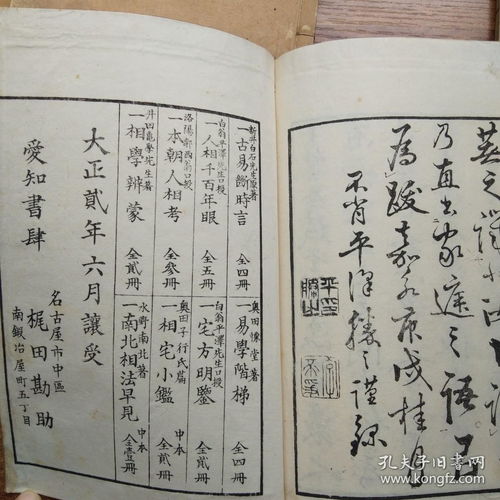 乃直出家庭之語百
為跋嘉永庚戌桂月
不肖平澤勝之謹錄
新井白石先生原著
一古易斷時言 全四冊
白翁平澤先生口授
一人相千百年眼 全五冊
洛陽郭西翁口授
一本朝人相考 全參冊
井田龜學先生著
一相學辨蒙 全貳冊
奥田慊堂著
一易學階梯 全四冊
白翁平澤先生口授
一宅方明鑒 全貳冊
奥田子行氏篇
一相宅小鑑 中本 全貳冊
水野南北著
一南北相法早見 中本 全壹冊
大正貳年六月讓受
愛知書肆
名古屋市中區
南鍛冶屋町五丁目
梶田勘助
孔夫子旧书网
kongfz.com